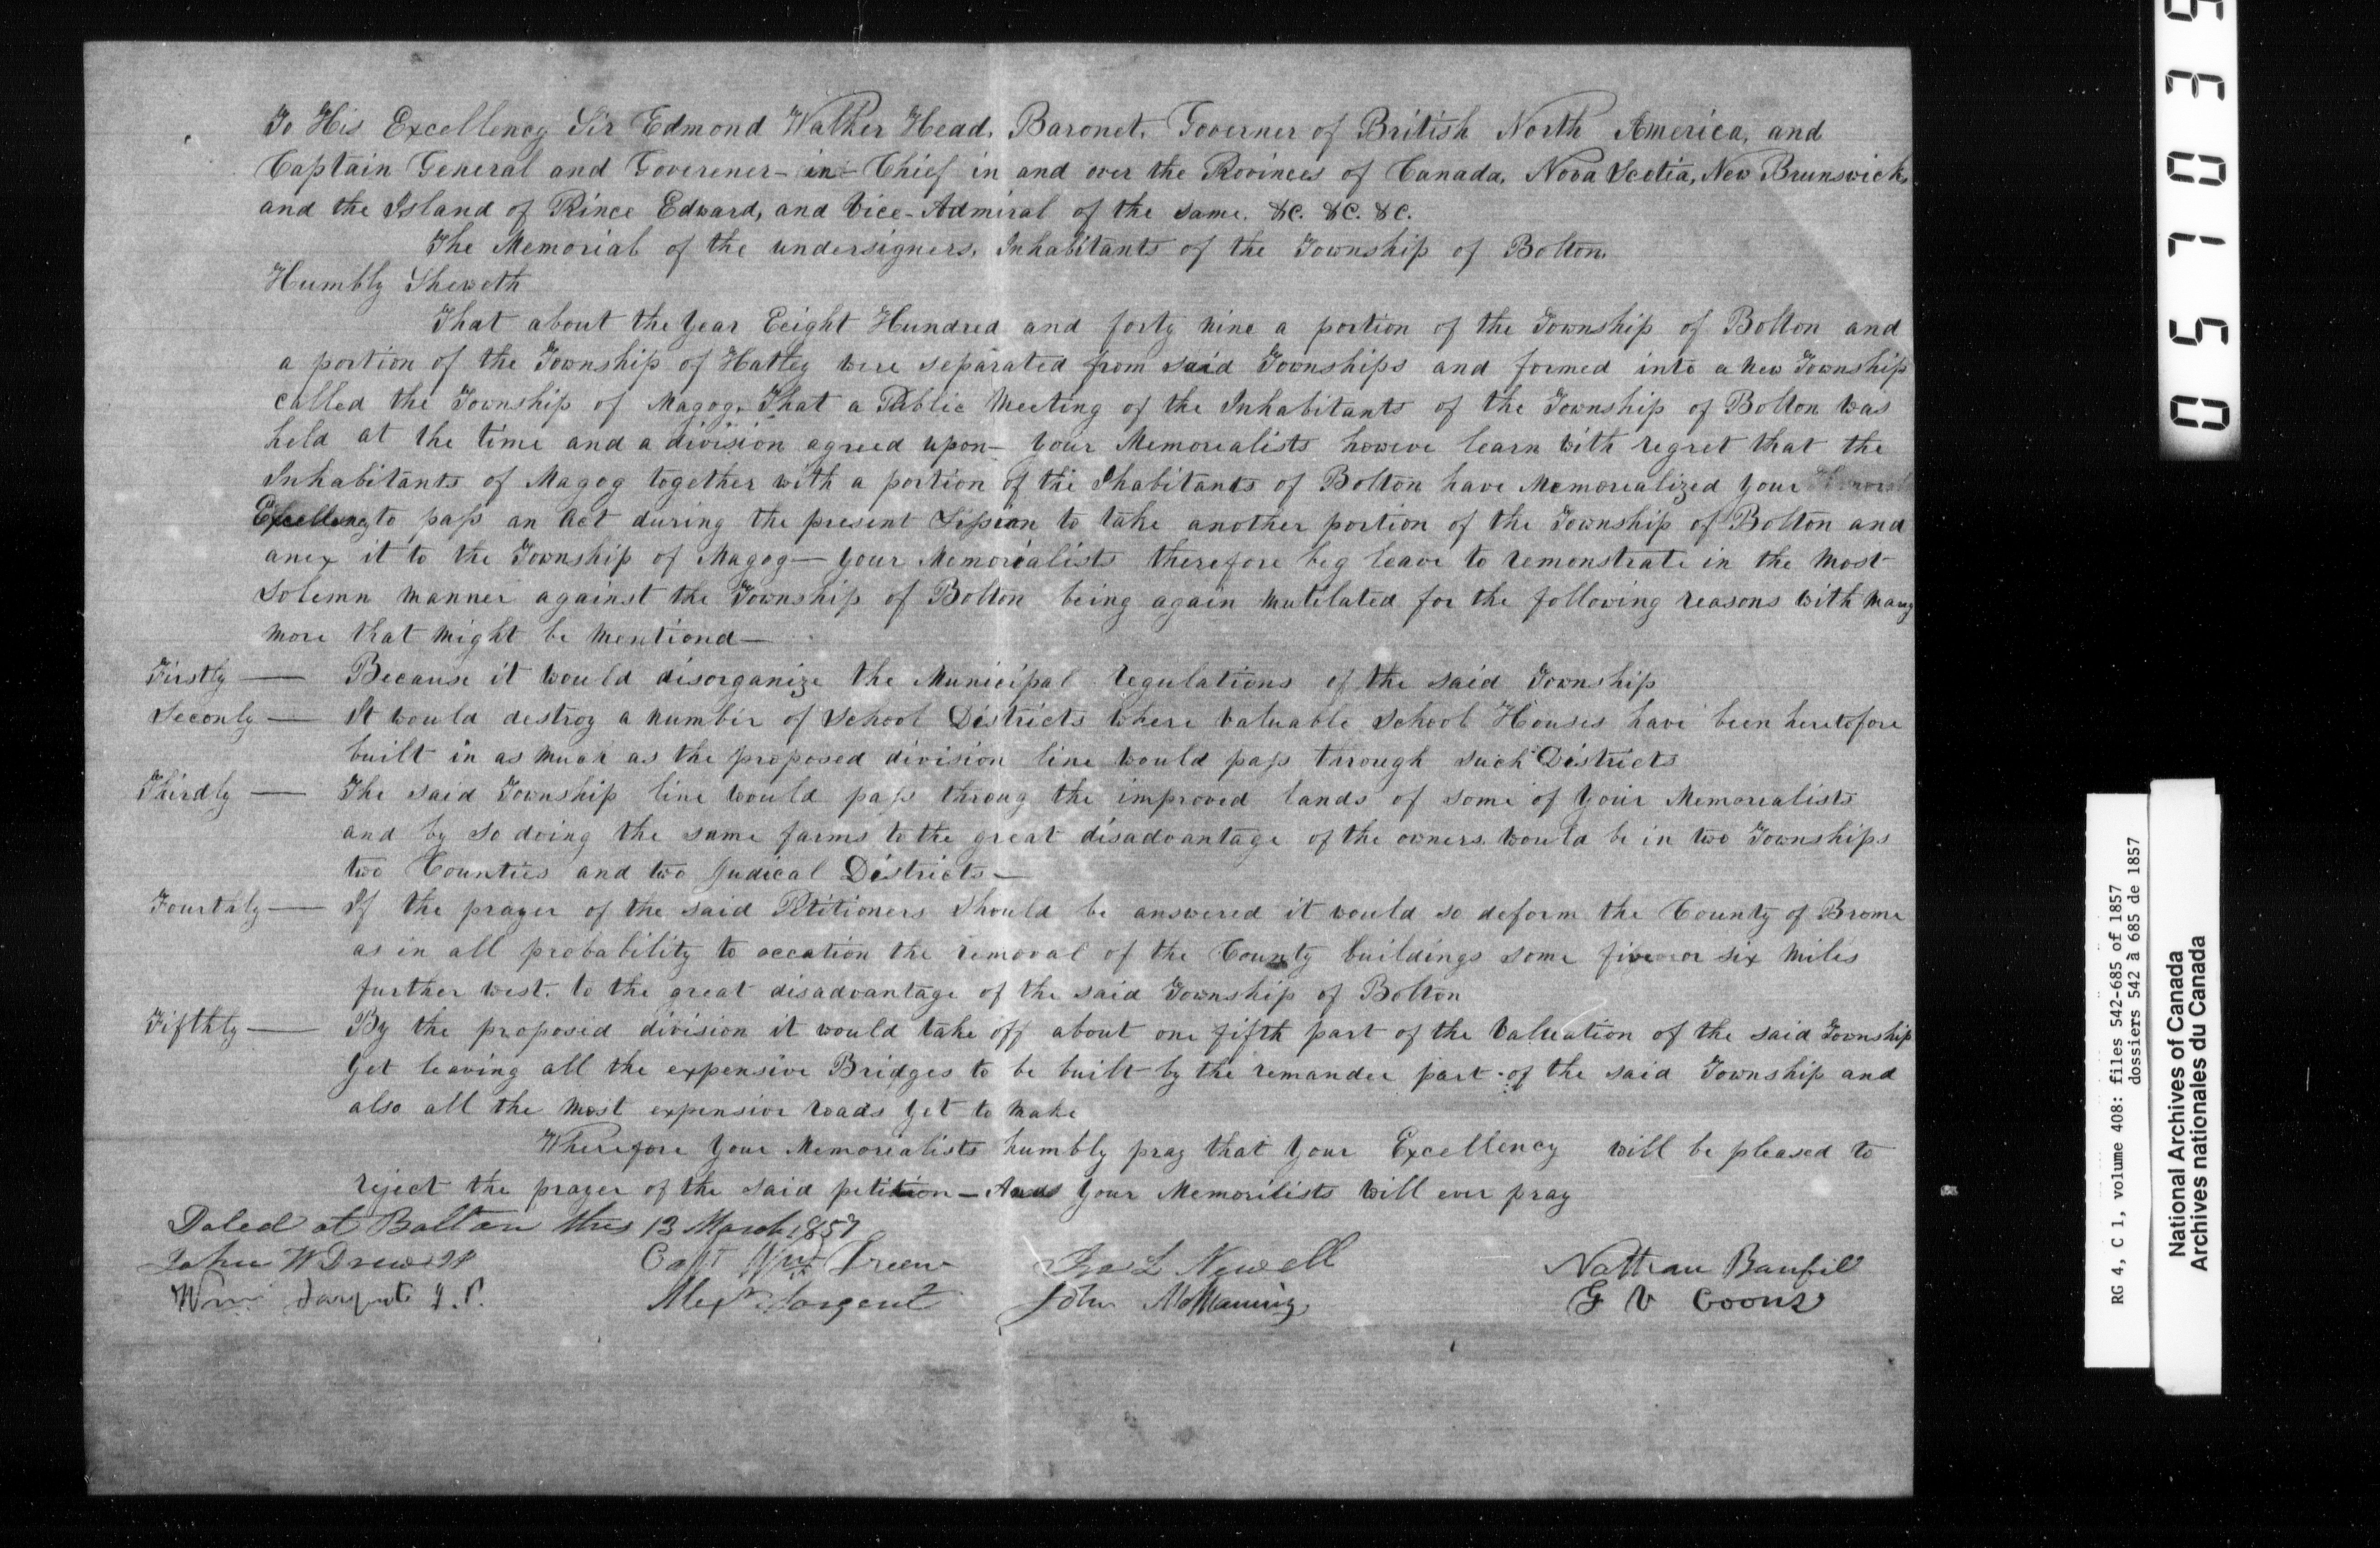 To His Excellency Sir Edmond Walker Head, Baronet, Governer of British North America, and
Captain General and Goverener-in-Chief in and over the Provinces of Canada, Nova Scotia, New Brunswick,
and the Island of Prince Edward, and Vice-Admiral of the same. &C. &C. &C.
The Memorial of the undersigners, Inhabitants of the Township of Bolton.
Humbly Sheweth
That about the Year Eeight Hundred and forty nine a portion of the Township of Bolton and
a portion of the Township of Hatley were separated from said Townships and formed into a New Township
called the Township of Magog. That a Public Meeting of the Inhabitants of the Township of Bolton was
held at the time and a division agreed upon— Your Memorealists howeve learn with regret that the
Inhabitants of Magog together with a portion of the Ihabitants of Bolton have Memorealized Your
Excellency to pass an Act during the present Session to take another portion of the Township of Bolton and
anex it to the Township of Magog— Your Memorealists therefore beg leave to remonstrate in the Most
Solemn Manner against the Township of Bolton being again Mutilated for the following reasons with Many
More that Might be Mentiond—
Firstly — Because it would disorganize the Municipal regulations of the said Township
Seconly — It would destroy a number of School Districts where valuable School Houses have been heretofore
built in as Much as the proposed division line would pass through such Districts
Thirdly — The said Township line would pass throug the improved lands of some of Your Memorealists
and by so doing the same farms to the great disadvantage of the owners would be in two Townships
two Counties and two Judical Districts—
Fourthly — If the prayer of the said Petitioners Should be answered it would so deform the County of Brome
as in all probability to occation the removal of the County buildings some five or six Miles
further west. to the great disadvantage of the said Township of Bolton
Fifthly — By the proposed division it would take off about one fifth part of the Valuation of the said Township
Yet leaving all the expensive Bridges to be built by the remander part of the said Township and
also all the Most expensive roads Yet to Make
Wherefore Your Memorealists humbly pray that Your Excellency will be pleased to
reject the prayer of the said petition— And Your Memorilists will ever pray
Dated at Bolton this 13 March 1857
John W Drew JP Capt Wm Green L Newell Nathan Banfill
Wm Sargent J.P. Alexr Sargent John McManning G V Coons
0571035
RG 4, C 1, volume 408: files 542-685 of 1857
dossiers 542 à 685 de 1857
National Archives of Canada
Archives nationales du Canada